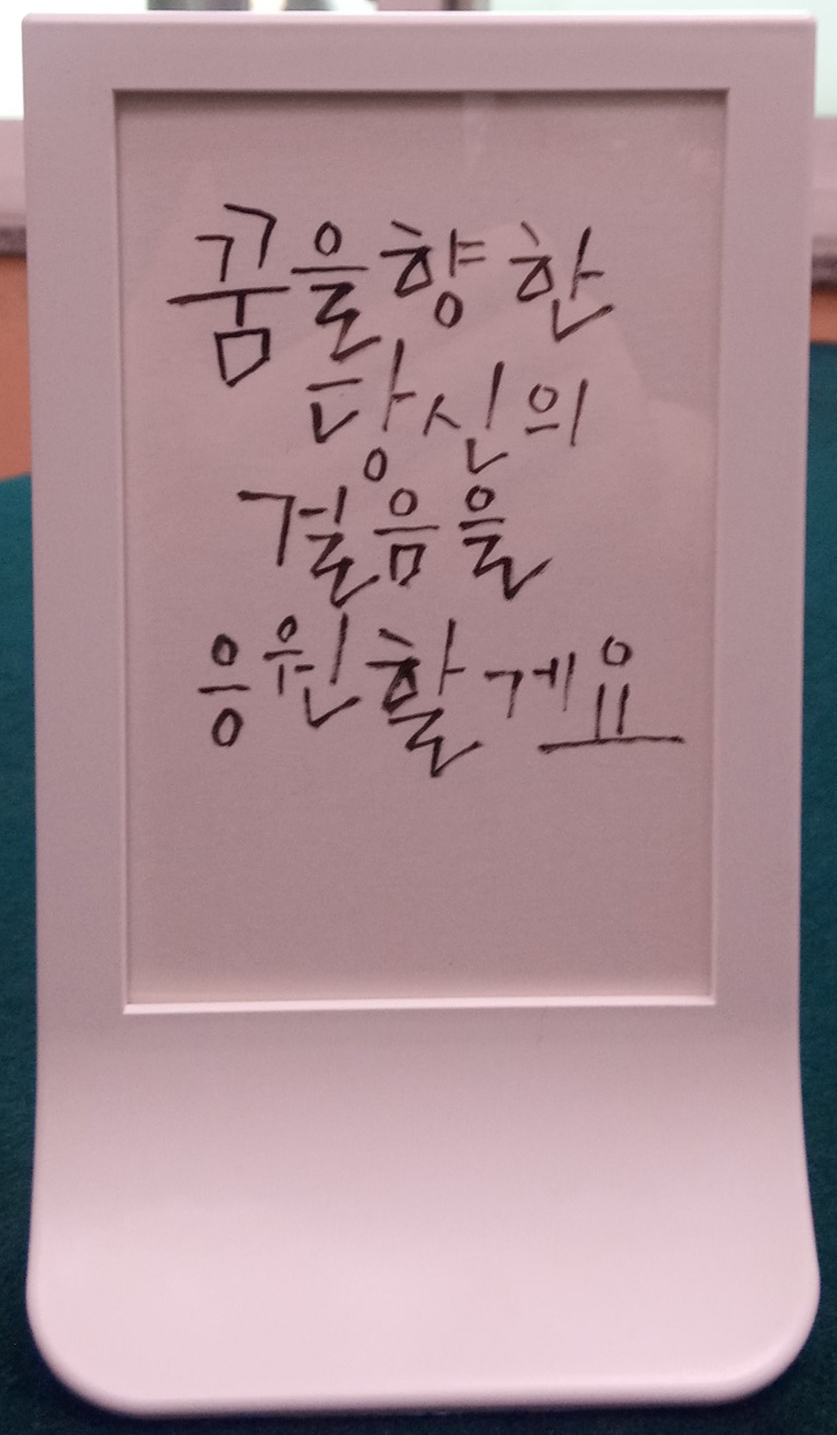 꿈을향한
당신의
걸음을
응원할게요